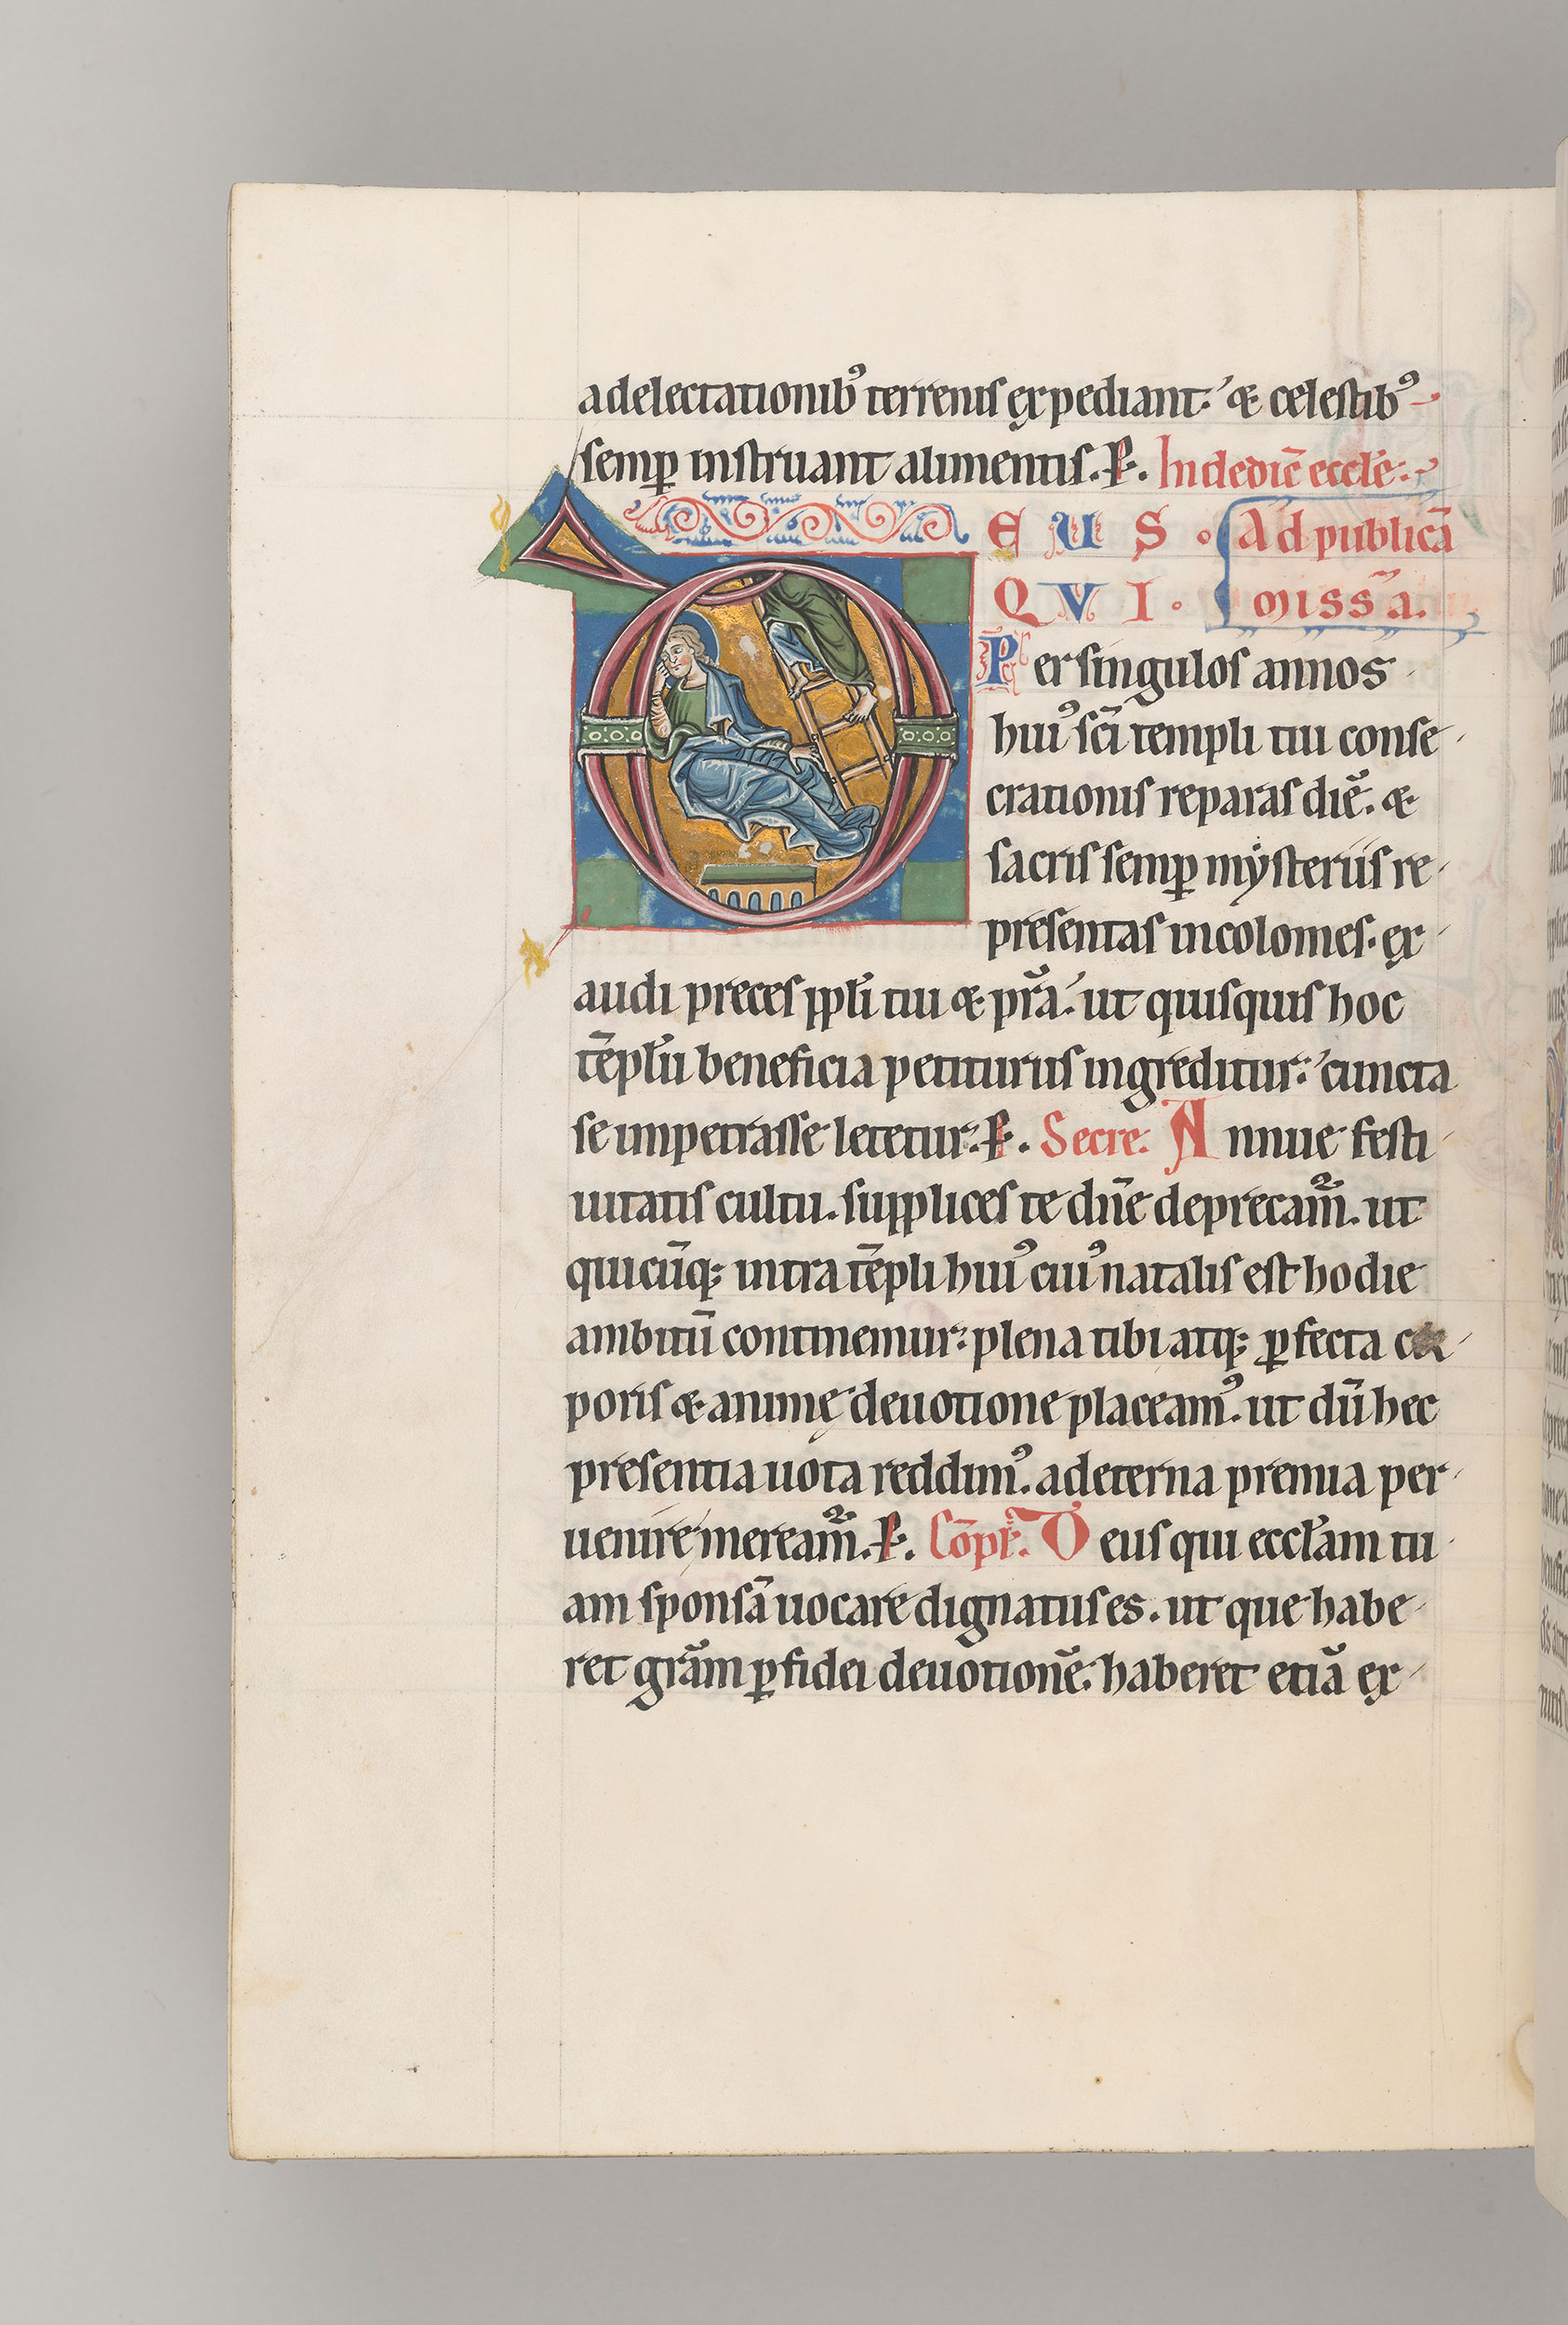 adelectationib⁹ terrenis expediant: ⁊ celestib⁹
semꝑ instruant alimentis. P̶. In dedic̄e eccl̄e.
EUS · Ad publicā
QVI · missā.
Per singulos annos
hui⁹ sc̄i templi tui conse
crationis reparas diē. ⁊
sacris semꝑ mẏsteriis re
presentas incolomes. ex
audi preces ppl̄i tui ⁊ pr̄a. ut quisquis hoc
tēplū beneficia petiturus ingreditur: cuncta
se impetrasse letetur. P̶. Secre. Annue festi
uitatis cultu. supplices te dn̄e deprecam̄. ut
quicūq; intra tēpli hui⁹ cui⁹ natalis est hodie
ambitū continemur: plena tibi atq; ꝑfecta
poris ⁊ animę deuotione placeam⁹. ut dū hec
presentia uota reddim⁹. ad eterna premia per
uenire meream̄. P̶. Cōpl̄. Deus qui eccl̄am tu
am sponsā uocare dignatus es. ut que habe
ret gr̄am ꝑ fidei deuotionē: haberet etiā ex